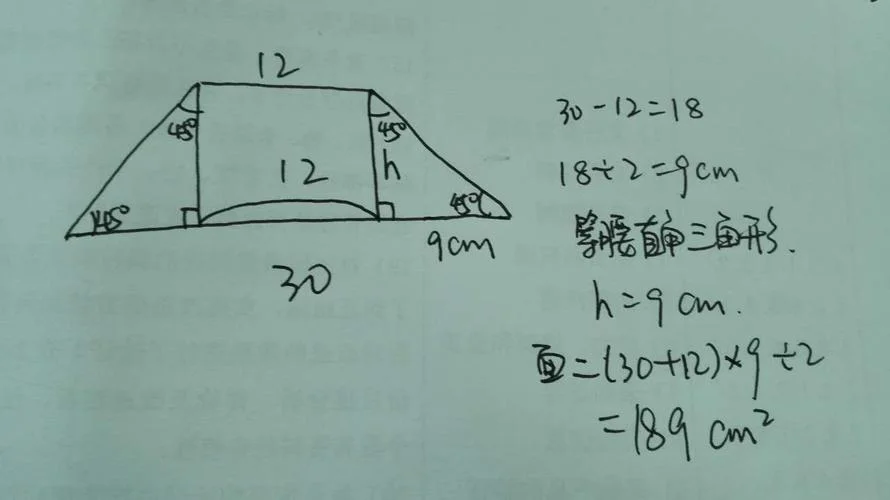 12
45°
45°
12
h
45°
45°
9cm
30
30-12=18
18÷2=9cm
等腰直角三角形.
h=9cm.
面=(30+12)×9÷2
=189 cm²